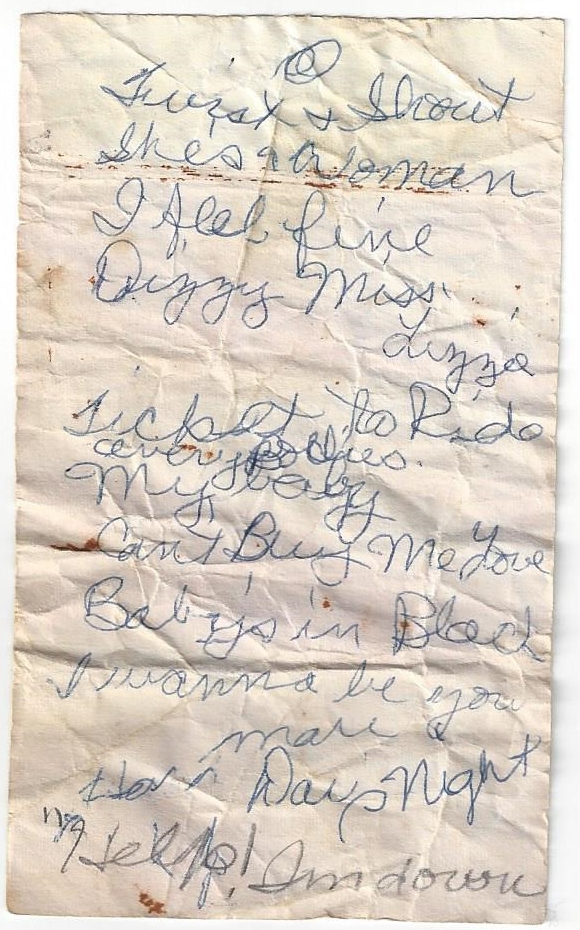 Twist & Shout
Shes a Woman
I feel fine
Dizzy Miss
Lizze
Ticket to Ride
everybodies
My baby
Can't Buy Me Love
Baby's in Black
I wanna be you
man
Hard Days Night
Help! Im down